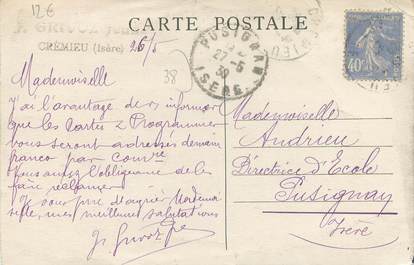 12€
CARTE POSTALE
CRÉMIEU (Isère) 26/5
38
PUSIGNAN
27-5
30
ISÈRE
40c
Mademoiselle
J'ai l'avantage de v/ informer
que les Cartes & Programmes
vous seront adressés demain
franco par
l'obligeance de les
faire réclamer
Je vous prie d'agréer Mademoi
selle, mes meilleures salutations
Mademoiselle
Andrieu
Directrice d'Ecole
Pusignan
Isère